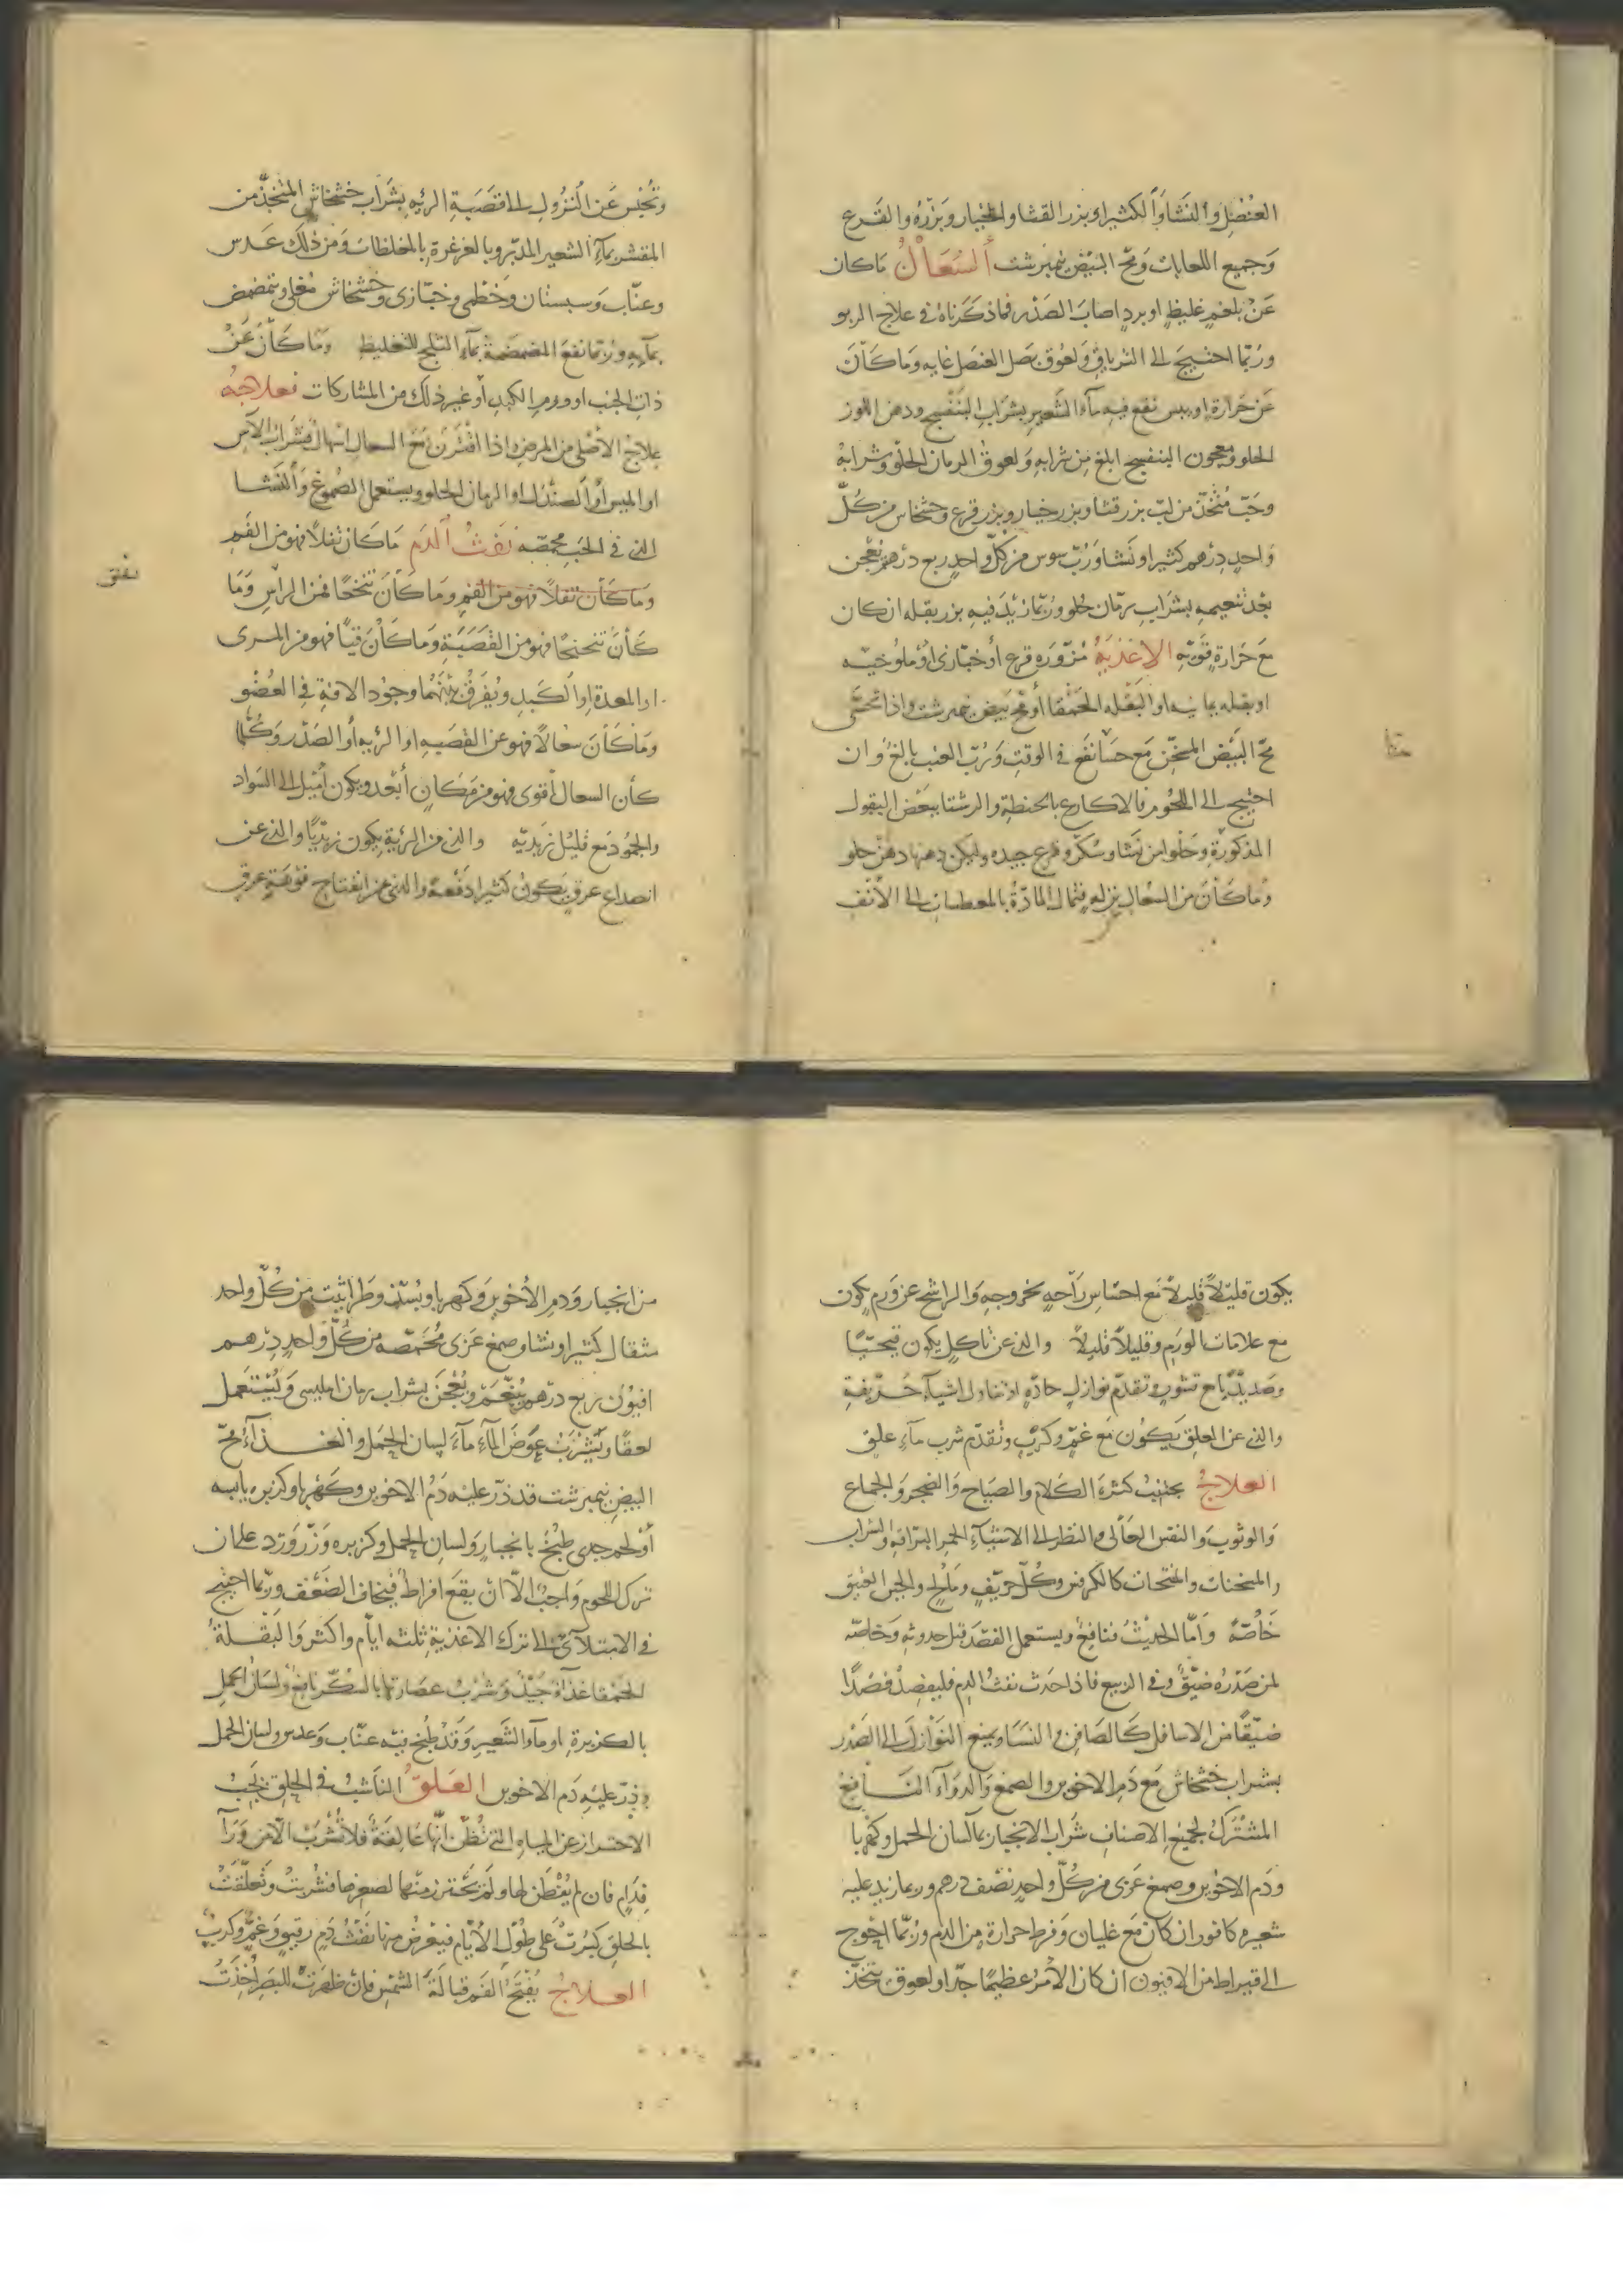 العنصل والنشا والكثيرا وبذر القثا والخيار وبزره والقرع
وجميع اللعابات ومح البيض نيمبرشت السعال ماكان
عن بلغم غليظ او برد اصاب الصدر فماذكرناه في علاج الربو
وربما احتيج الى الترياق ولعوق بصل العنصل غايه وماكان
عن حرارة او يبس نفع فيه ماء الشعير بشراب البنفسج ودهن اللوز
الحلو ومعجون البنفسج ابلغ من شرابه ولعوق الرمان الحلو وشرابه
وحب متخذ من لب بزر قثا وبزر خيار وبزر قرع وخشخاش من كل
واحد درهم كثيرا ونشا ورب سوس من كل واحد ربع درهم يعجن
بعد تنعيمه بشراب رمان حلو وربما زيد فيه بزر بقله ان كان
مع حرارة قويه الاغذية مزوره قرع او خبازى او ملوخيه
او بقله يمانيه او البقله الحمقا او مح بيض نيمبرشت واذا تحسى
مح البيض المسخن مع حسا نفع في الوقت ورب العنب بالغ وان
احتيج الى اللحوم فالاكارع بالحنطة والرشتا ببعض البقول
المذكورة وحلوا من نشا وسكر وقرع جيده وليكن دهنها دهن حلو
وماكان من السعال بنزله فتمال المادة بالمعطسات الى الانف
وتحبس عن النزول الى قصبة الرئيه بشراب خشخاش المتخذ من
المقشر بماء الشعير المدبر وبالغرغرة بالمغلظات ومن ذلك عدس
وعناب وسبستان وخطمى وخبازى وخشخاش مغلى ويتمضمض
بمآيه وربما نفع المضمضة بماء الثلج للتغليظ وماكان عن
ذات الجنب او ورم الكبد او غير ذلك من المشاركات فعلاجه
علاج الاصلى من المرض واذا اقترن مع السعال اسهال فشراب الآس
او الميس او الصندل او الرمان الحلو ويستعمل الصموغ والنشا
التى في الحب محمصه نفث الدم ماكان تفلا فهو من الفم
وماكان تفلا فهو من الفم وماكان تنخعا فمن الراس وما
كان تنحنحا فهو من القصبة وماكان قيئا فهو من المرى
او المعدة او الكبد ويفرق بينهما وجود الافة في العضو
وماكان سعالا فهو عن القصبه او الرئيه او الصدر وكلما
كان السعال اقوى فهو من مكان ابعد ويكون اميل الى السواد
والجمود مع قليل زبديه والذى من الرئية يكون زبديا والذى عن
انصداع عرق يكون كثيرا دفعة والذى عن انفتاح فوهة عرق
يكون قليلا قليلا مع احساس راحه بخروجه والراشح عن ورم يكون
مع علامات الورم وقليلا قليلا والذى عن تاكل يكون قيحيا
وصديديا مع قشور وتقدم نوازل حاده او تناول اشيآء حريفة
والذى عن العلق يكون مع غم وكرب وتقدم شرب ماء علق
العلاج يجتنب كثرة الكلام والصياح والضجر والجماع
والوثوب والنفس العالى والنظر الى الاشيآء الحمر البراقه والشراب
والمسخنات والمفتحات كالكرفس وكل حريف ومالح والجبن العتيق
خاصة واما الحديث فنافع ويستعمل الفصد قبل حدوثه وخاصه
لمن صدره ضيق وفى الربيع فاذا حدث نفث الدم فليفصد فصدا
ضيقا من الاسافل كالصافن والنسا ويمنع النوازل الى الصدر
بشراب خشخاش مع دم الاخوين والصمغ والدوآء النافع
المشترك لجميع الاصناف شراب الانجبار بماء لسان الحمل وكهربا
ودم الاخوين وصمغ عربى من كل واحد نصف درهم وربما زيد عليه
شعيره كافور ان كان مع غليان وفرط حرارة من الدم وربما احوج
الى قيراط من الافيون ان كان الامر عظيما جدا ولعوق يتخذ
من انجبار ودم الاخوين وكهربا وبسذ وطراثيث من كل واحد
مثقال كثيرا ونشا وصمغ عربى محمصه من كل واحد درهم
افيون ربع درهم ينعم ويعجن بشراب رمان امليسى ويستعمل
لعقا ويشرب عوض الماء ماء لسان الحمل والغذآء مح
البيض نيمبرشت قد ذر عليه دم الاخوين وكهربا وكزبره يابسه
او لحم جدى طبخ بانجبار ولسان الحمل وكزبره وزر ورد على ان
ترك اللحوم واجب الا ان يقع افراط فيخاف الضعف وربما احتيج
في الامتلآئى الى ترك الاغذية ثلثه ايام واكثر والبقلة
الحمقا غذآؤ جيد وشرب عصارتها بالسكر نافع ولسان الحمل
بالكزبرة او ماء الشعير وقد طبخ فيه عناب وعدس ولسان الحمل
وذر عليه دم الاخوين العلق الناشب في الحلق يجب
الاحتراز عن المياه التى تظن انها عالقة فلا تشرب الا من ورآ
فدام فان لم يفطن لها ولم يحترز منها لصغرها فشربت وتعلقت
بالحلق كبرت على طول الايام فيعرض منها نفث دم رقيق وغم وكرب
العلاج يفتح الفم قبالة الشمس فان ظهرت للبصر اخذت